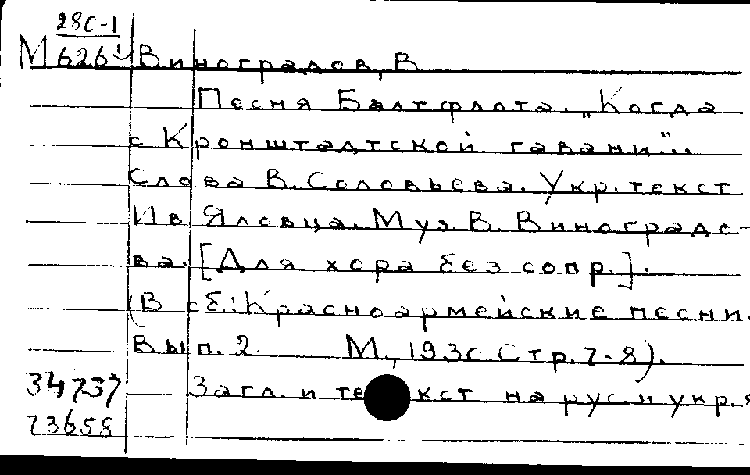 28с-1
М626 Виноградов, В
Песня Балтфлота. „Когда
с Кронштадтской гавани"..
Слова В. Соловьева. Укр. текст
Ив Яловца. Муз. В. Виноградо-
ва. [Для хора без сопр.].
(В сб.: Красноармейские песни.
Вып. 2. М., 193 Стр. 7-8).
34737 Загл. и текст на рус. и укр. я
73658